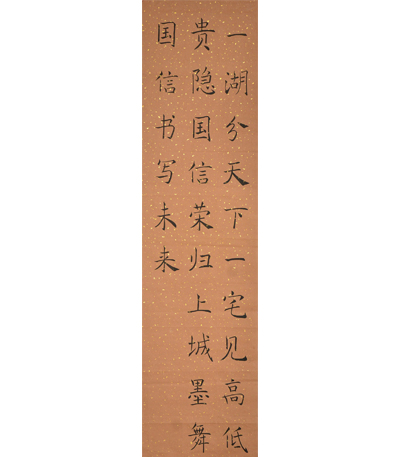 一湖分天下一宅见高低
贵隐国信荣归上城墨舞
国信书写未来